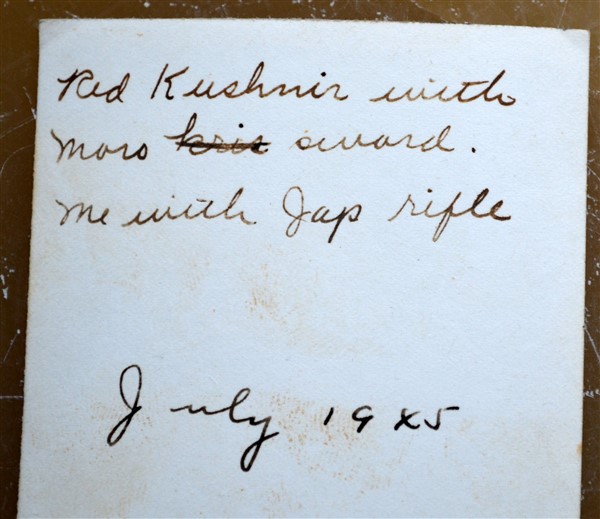 Red Kushnir with
Moro kris sword.
Me with Jap rifle
July 1945